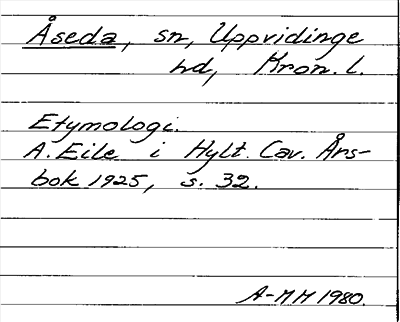 Åseda, sn, Uppvidinge
hd, Kron. l.
Etymologi.
A. Eile i Hylt. Cav. Års-
bok 1925, s. 32.
A-MM 1980.